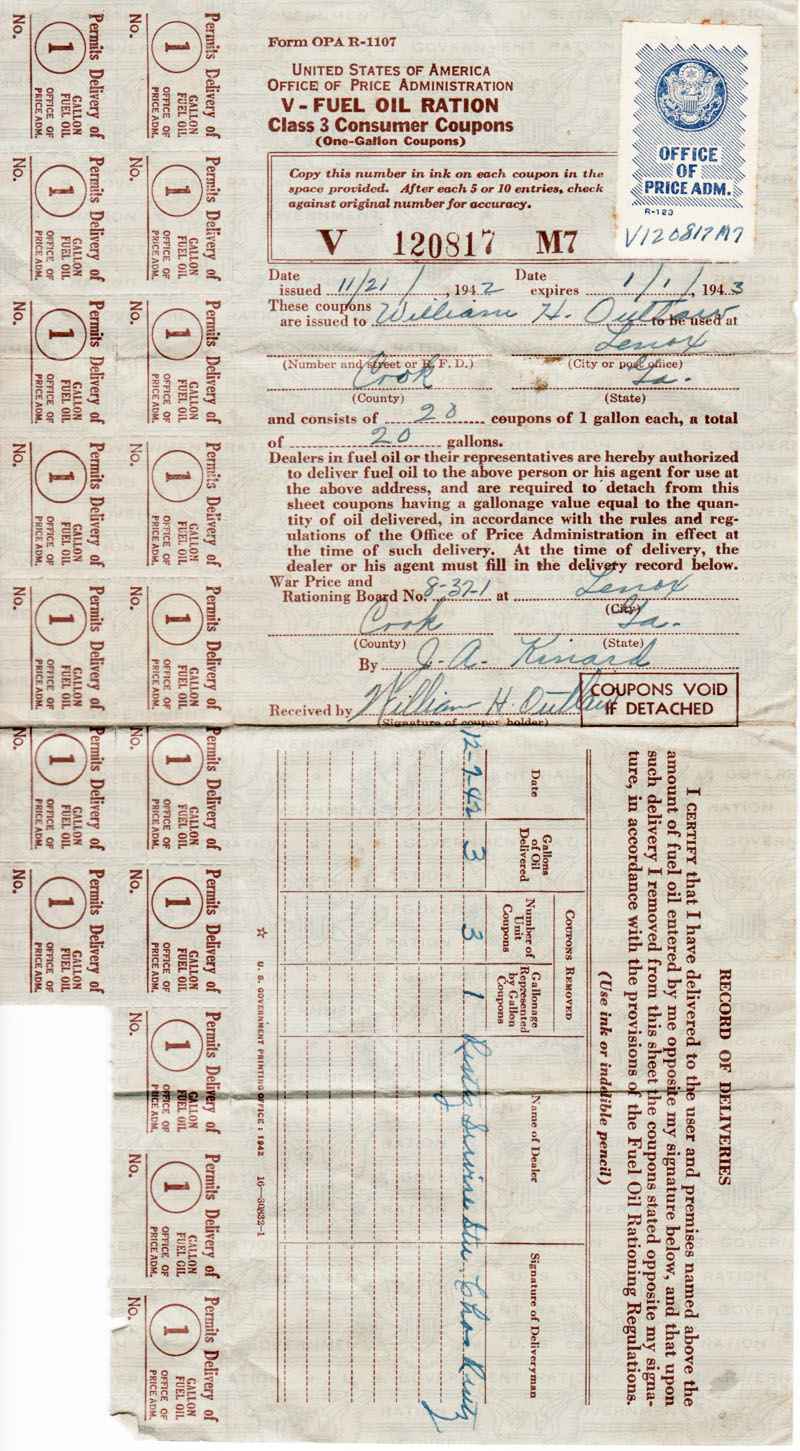 Form OPA R-1107
UNITED STATES OF AMERICA
OFFICE OF PRICE ADMINISTRATION
V - FUEL OIL RATION
Class 3 Consumer Coupons
(One-Gallon Coupons)
Copy this number in ink on each coupon in the
space provided. After each 5 or 10 entries, check
against original number for accuracy.
V 120817 M7
OFFICE
OF
PRICE ADM.
R-123
V120817M7
Date issued 11/21/, 1942 Date expires 1/1/, 1943
These coupons
are issued to William H. Outlaw to be used at
Lenox
(Number and street or R. F. D.) (City or post office)
Cook Ga.
(County) (State)
and consists of 20 coupons of 1 gallon each, a total
of 20 gallons.
Dealers in fuel oil or their representatives are hereby authorized
to deliver fuel oil to the above person or his agent for use at
the above address, and are required to detach from this
sheet coupons having a gallonage value equal to the quan-
tity of oil delivered, in accordance with the rules and reg-
ulations of the Office of Price Administration in effect at
the time of such delivery. At the time of delivery, the
dealer or his agent must fill in the delivery record below.
War Price and
Rationing Board No. 8-37-1 at Lenox
(City)
Cook Ga.
(County) (State)
By J. A. Kinard
Received by William H. Outlaw
(Signature of coupon holder)
COUPONS VOID
IF DETACHED
RECORD OF DELIVERIES
I CERTIFY that I have delivered to the user and premises named above the
amount of fuel oil entered by me opposite my signature below, and that upon
such delivery I removed from this sheet the coupons stated opposite my signa-
ture, in accordance with the provisions of the Fuel Oil Rationing Regulations.
(Use ink or indelible pencil)
Date
Gallons of Oil Delivered
COUPONS REMOVED
Number of Unit Coupons
Gallonage Represented by Gallon Coupons
Name of Dealer
Signature of Deliveryman
12-7-42 3 3 1
☆ U. S. GOVERNMENT PRINTING OFFICE : 1942 16—30832-1
Permits Delivery of
1
GALLON
FUEL OIL
OFFICE OF
PRICE ADM.
No.
Permits Delivery of
1
GALLON
FUEL OIL
OFFICE OF
PRICE ADM.
No.
Permits Delivery of
1
GALLON
FUEL OIL
OFFICE OF
PRICE ADM.
No.
Permits Delivery of
1
GALLON
FUEL OIL
OFFICE OF
PRICE ADM.
No.
Permits Delivery of
1
GALLON
FUEL OIL
OFFICE OF
PRICE ADM.
No.
Permits Delivery of
1
GALLON
FUEL OIL
OFFICE OF
PRICE ADM.
No.
Permits Delivery of
1
GALLON
FUEL OIL
OFFICE OF
PRICE ADM.
No.
Permits Delivery of
1
GALLON
FUEL OIL
OFFICE OF
PRICE ADM.
No.
Permits Delivery of
1
GALLON
FUEL OIL
OFFICE OF
PRICE ADM.
No.
Permits Delivery of
1
GALLON
FUEL OIL
OFFICE OF
PRICE ADM.
No.
Permits Delivery of
1
GALLON
FUEL OIL
OFFICE OF
PRICE ADM.
No.
Permits Delivery of
1
GALLON
FUEL OIL
OFFICE OF
PRICE ADM.
No.
Permits Delivery of
1
GALLON
FUEL OIL
OFFICE OF
PRICE ADM.
No.
Permits Delivery of
1
GALLON
FUEL OIL
OFFICE OF
PRICE ADM.
No.
Permits Delivery of
1
GALLON
FUEL OIL
OFFICE OF
PRICE ADM.
No.
Permits Delivery of
1
GALLON
FUEL OIL
OFFICE OF
PRICE ADM.
No.
Permits Delivery of
1
GALLON
FUEL OIL
OFFICE OF
PRICE ADM.
No.